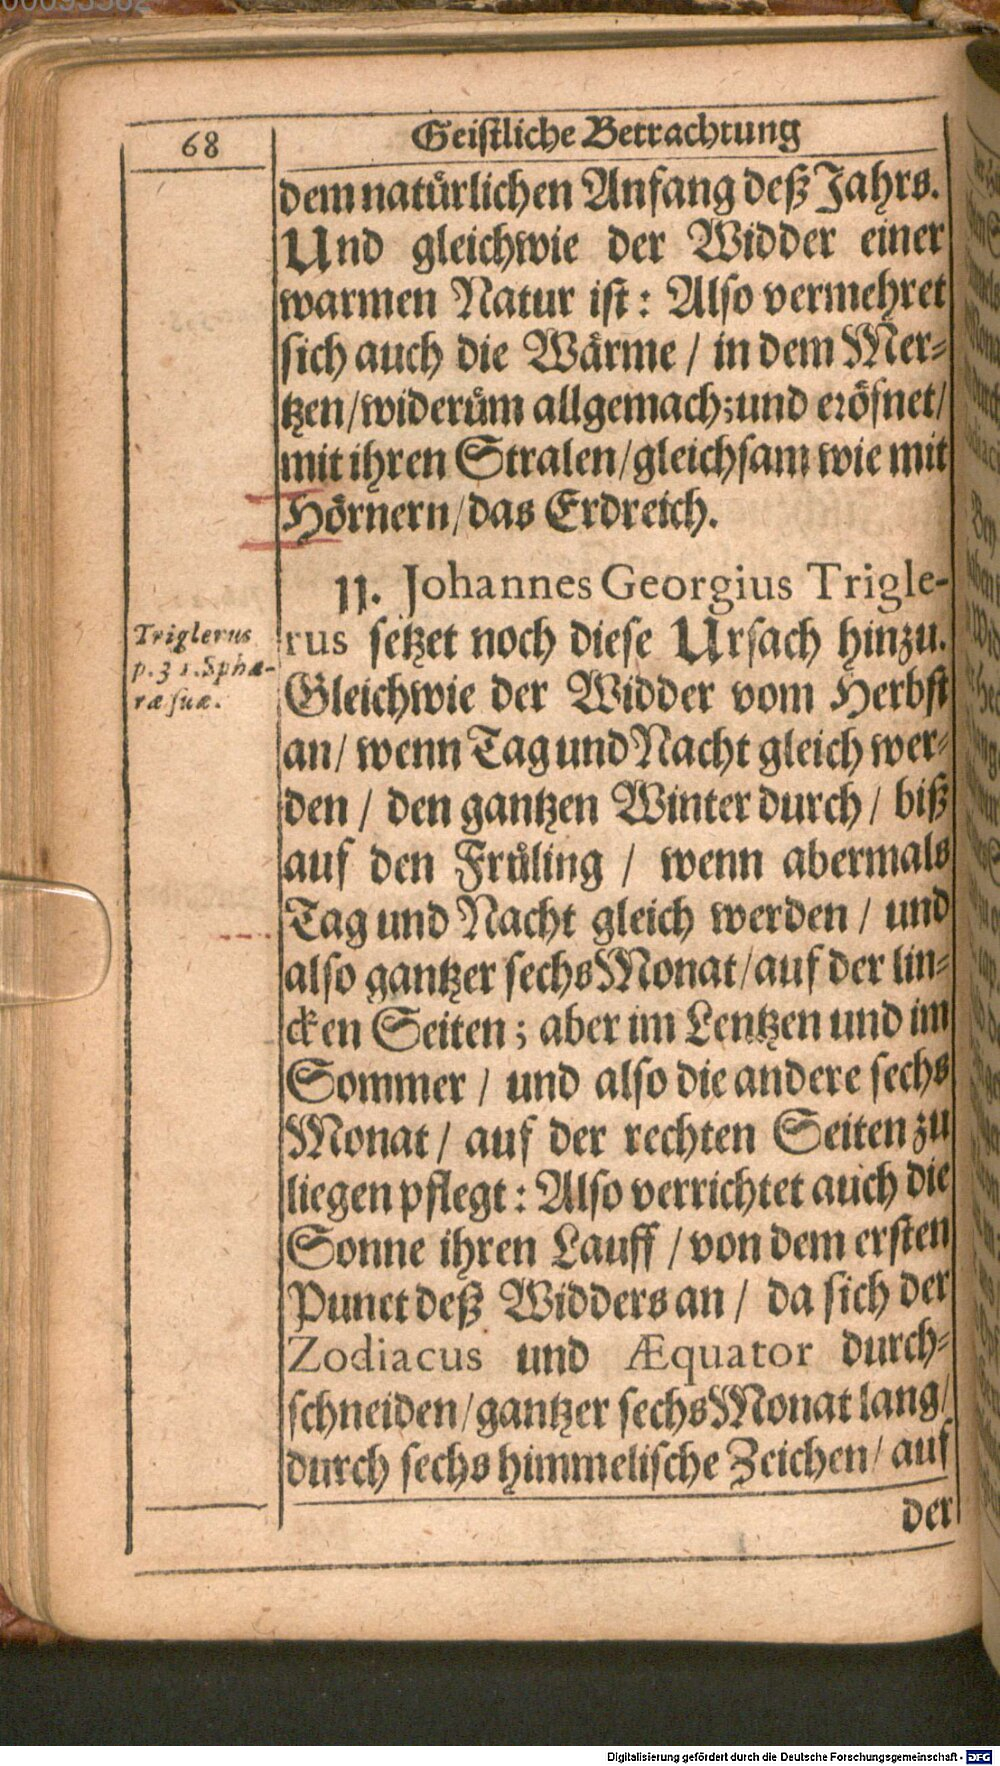 68
Geistliche Betrachtung
dem natürlichen Anfang deß Jahrs.
Und gleichwie der Widder einer
warmen Natur ist: Also vermehret
sich auch die Wärme / in dem Mer-
tzen / widerüm allgemach; und eröfnet /
mit ihren Stralen / gleichsam wie mit
Hörnern / das Erdreich.
11. Johannes Georgius Trigle-
rus setzet noch diese Ursach hinzu.
Triglerus
p. 31. Sphæ-
ræ suæ.
Gleichwie der Widder vom Herbst
an / wenn Tag und Nacht gleich wer-
den / den gantzen Winter durch / biß
auf den Früling / wenn abermals
Tag und Nacht gleich werden / und
also gantzer sechs Monat / auf der lin-
cken Seiten; aber im Lentzen und im
Sommer / und also die andere sechs
Monat / auf der rechten Seiten zu
liegen pflegt: Also verrichtet auch die
Sonne ihren Lauff / von dem ersten
Punct deß Widders an / da sich der
Zodiacus und Æquator durch-
schneiden / gantzer sechs Monat lang /
durch sechs himmelische Zeichen / auf
der
Digitalisierung gefördert durch die Deutsche Forschungsgemeinschaft - DFG